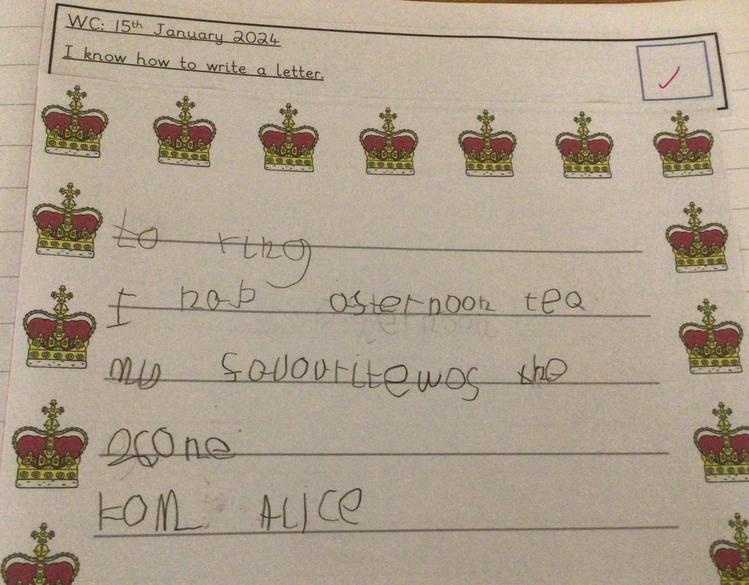 WC: 15th January 2024
I know how to write a letter.
to ring
I hab asternoon tea
my favourite was the
scone
fom ALiCe